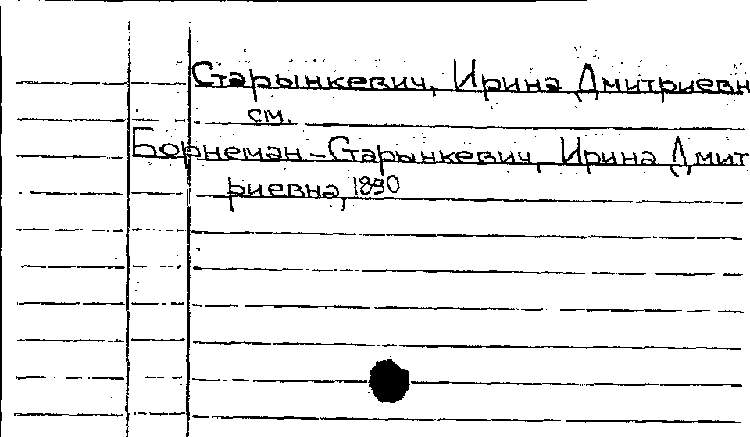 Старынкевич, Ирина Дмитриевн
см.
Борнеман-Старынкевич, Ирина Дмит
риевна, 1890